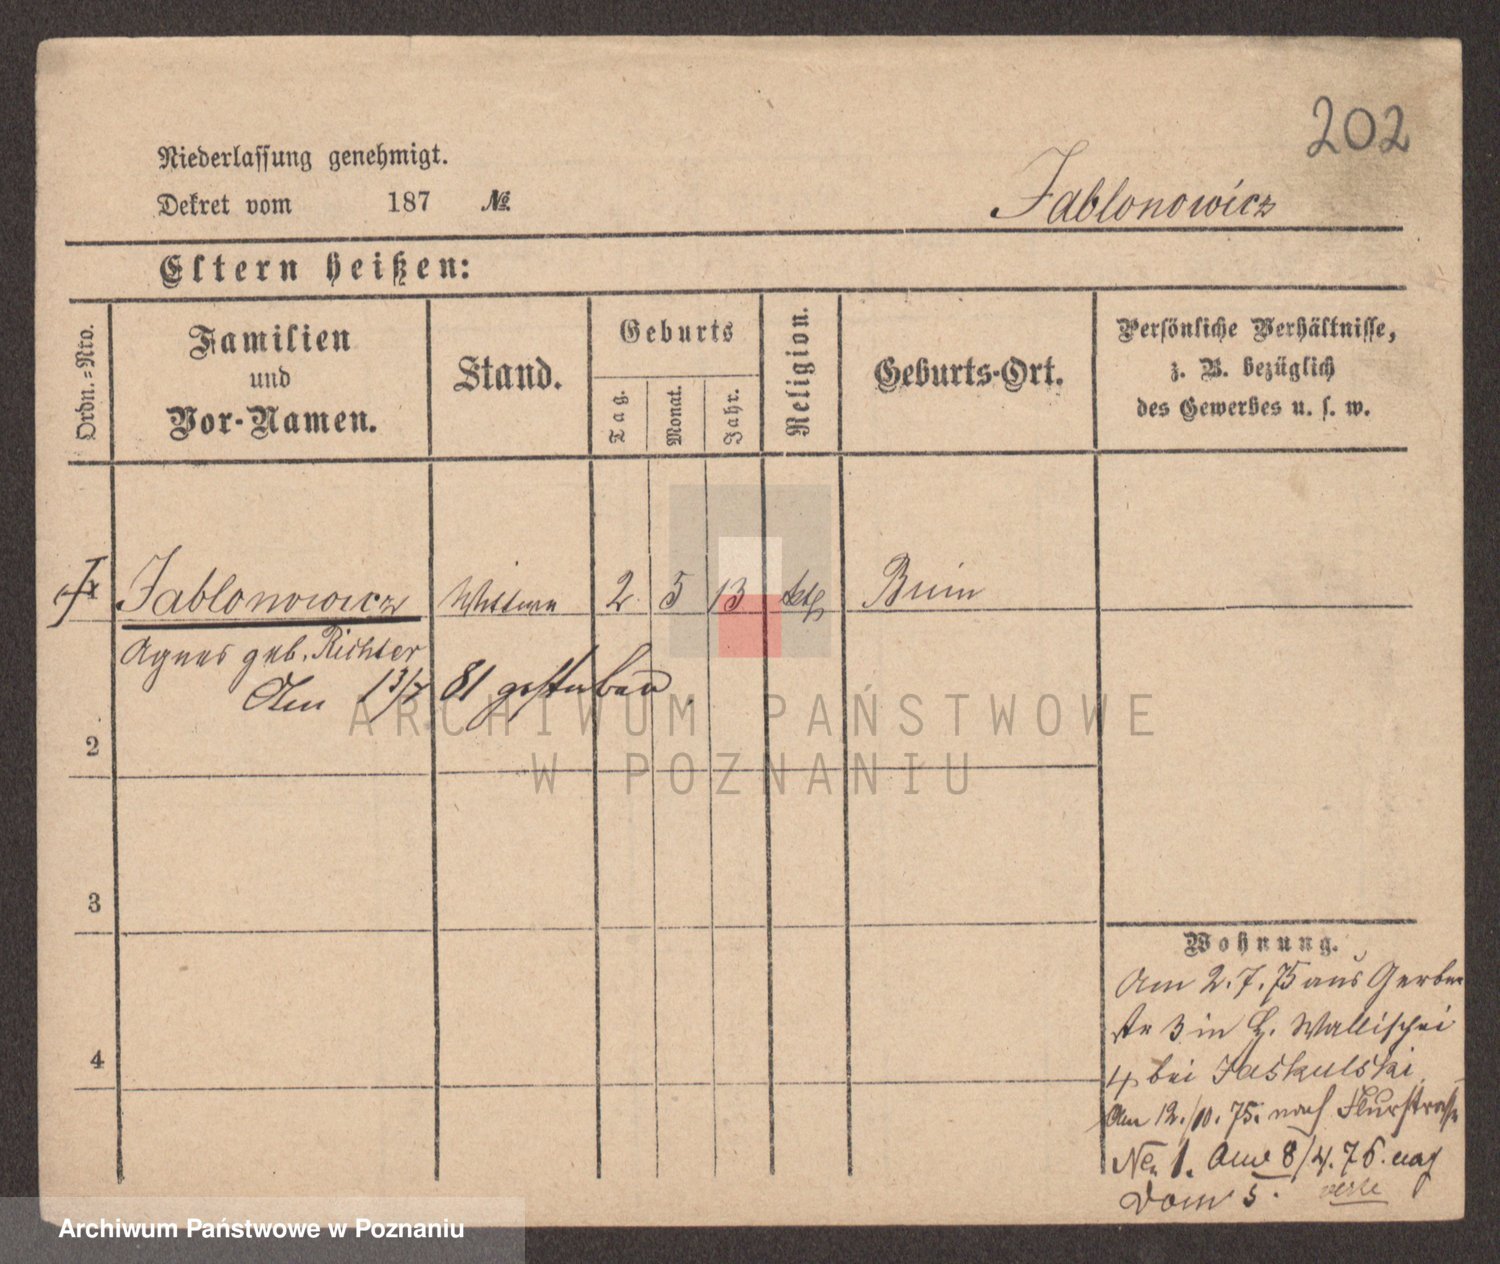 202
Niederlassung genehmigt.
Dekret vom 187 №
Jablonowicz
Eltern heißen:
Ordn.-Nro.
Familien
und
Vor-Namen.
Stand.
Geburts
Tag.
Monat.
Jahr.
Religion.
Geburts-Ort.
Persönliche Verhältnisse,
z. B. bezüglich
des Gewerbes u. s. w.
Jablonowicz Wittwe 2 5 13 kth
Agnes geb. Richter
Am 13/7 81 gestorben
2
3
4
Wohnung.
Am 2.7.75 aus Gerber
str 3 in Wallischei
4 bei Jaskulski
Am 12./10. 75. nach Flurstrasse
No 1. Am 8/4. 76. nach
Dom 5.
ARCHIWUM PAŃSTWOWE
W POZNANIU
Archiwum Państwowe w Poznaniu